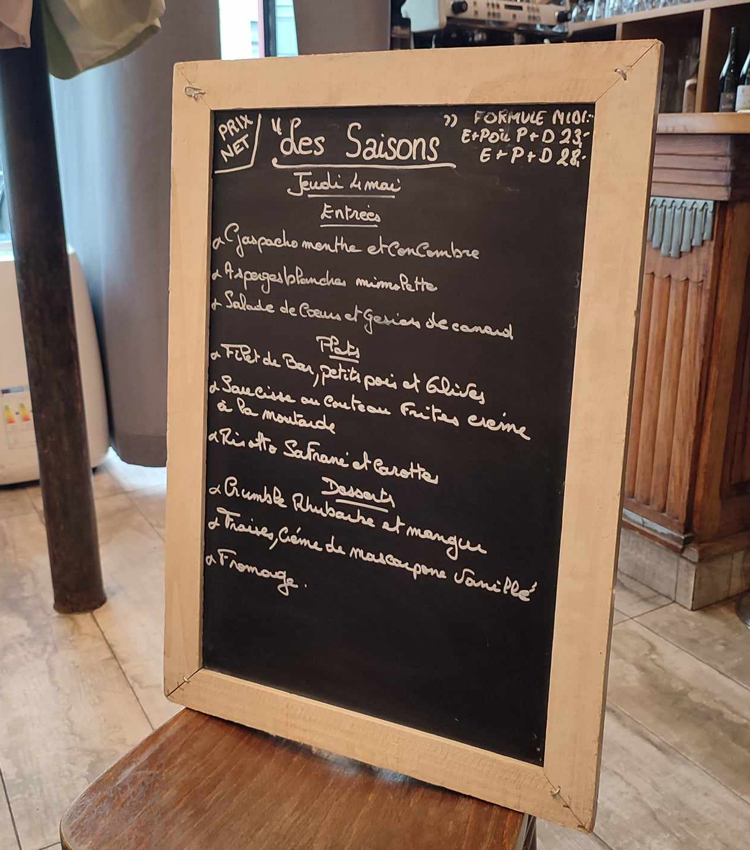 PRIX NET
"Les Saisons"
FORMULE MIDI:
E+P ou P+D 23,-
E+P+D 28,-
Jeudi 4 mai
Entrées
Gaspacho menthe et Concombre
Asperges blanches mimolette
Salade de Coeurs et Gesiers de canard
Plats
Filet de Bar, petits pois et Olives
Saucisse au Couteau Frites crème
à la moutarde
Risotto Safrané et Carottes
Desserts
Crumble Rhubarbe et mangue
Fraises, Crème de mascarpone Vanillé
Fromage.